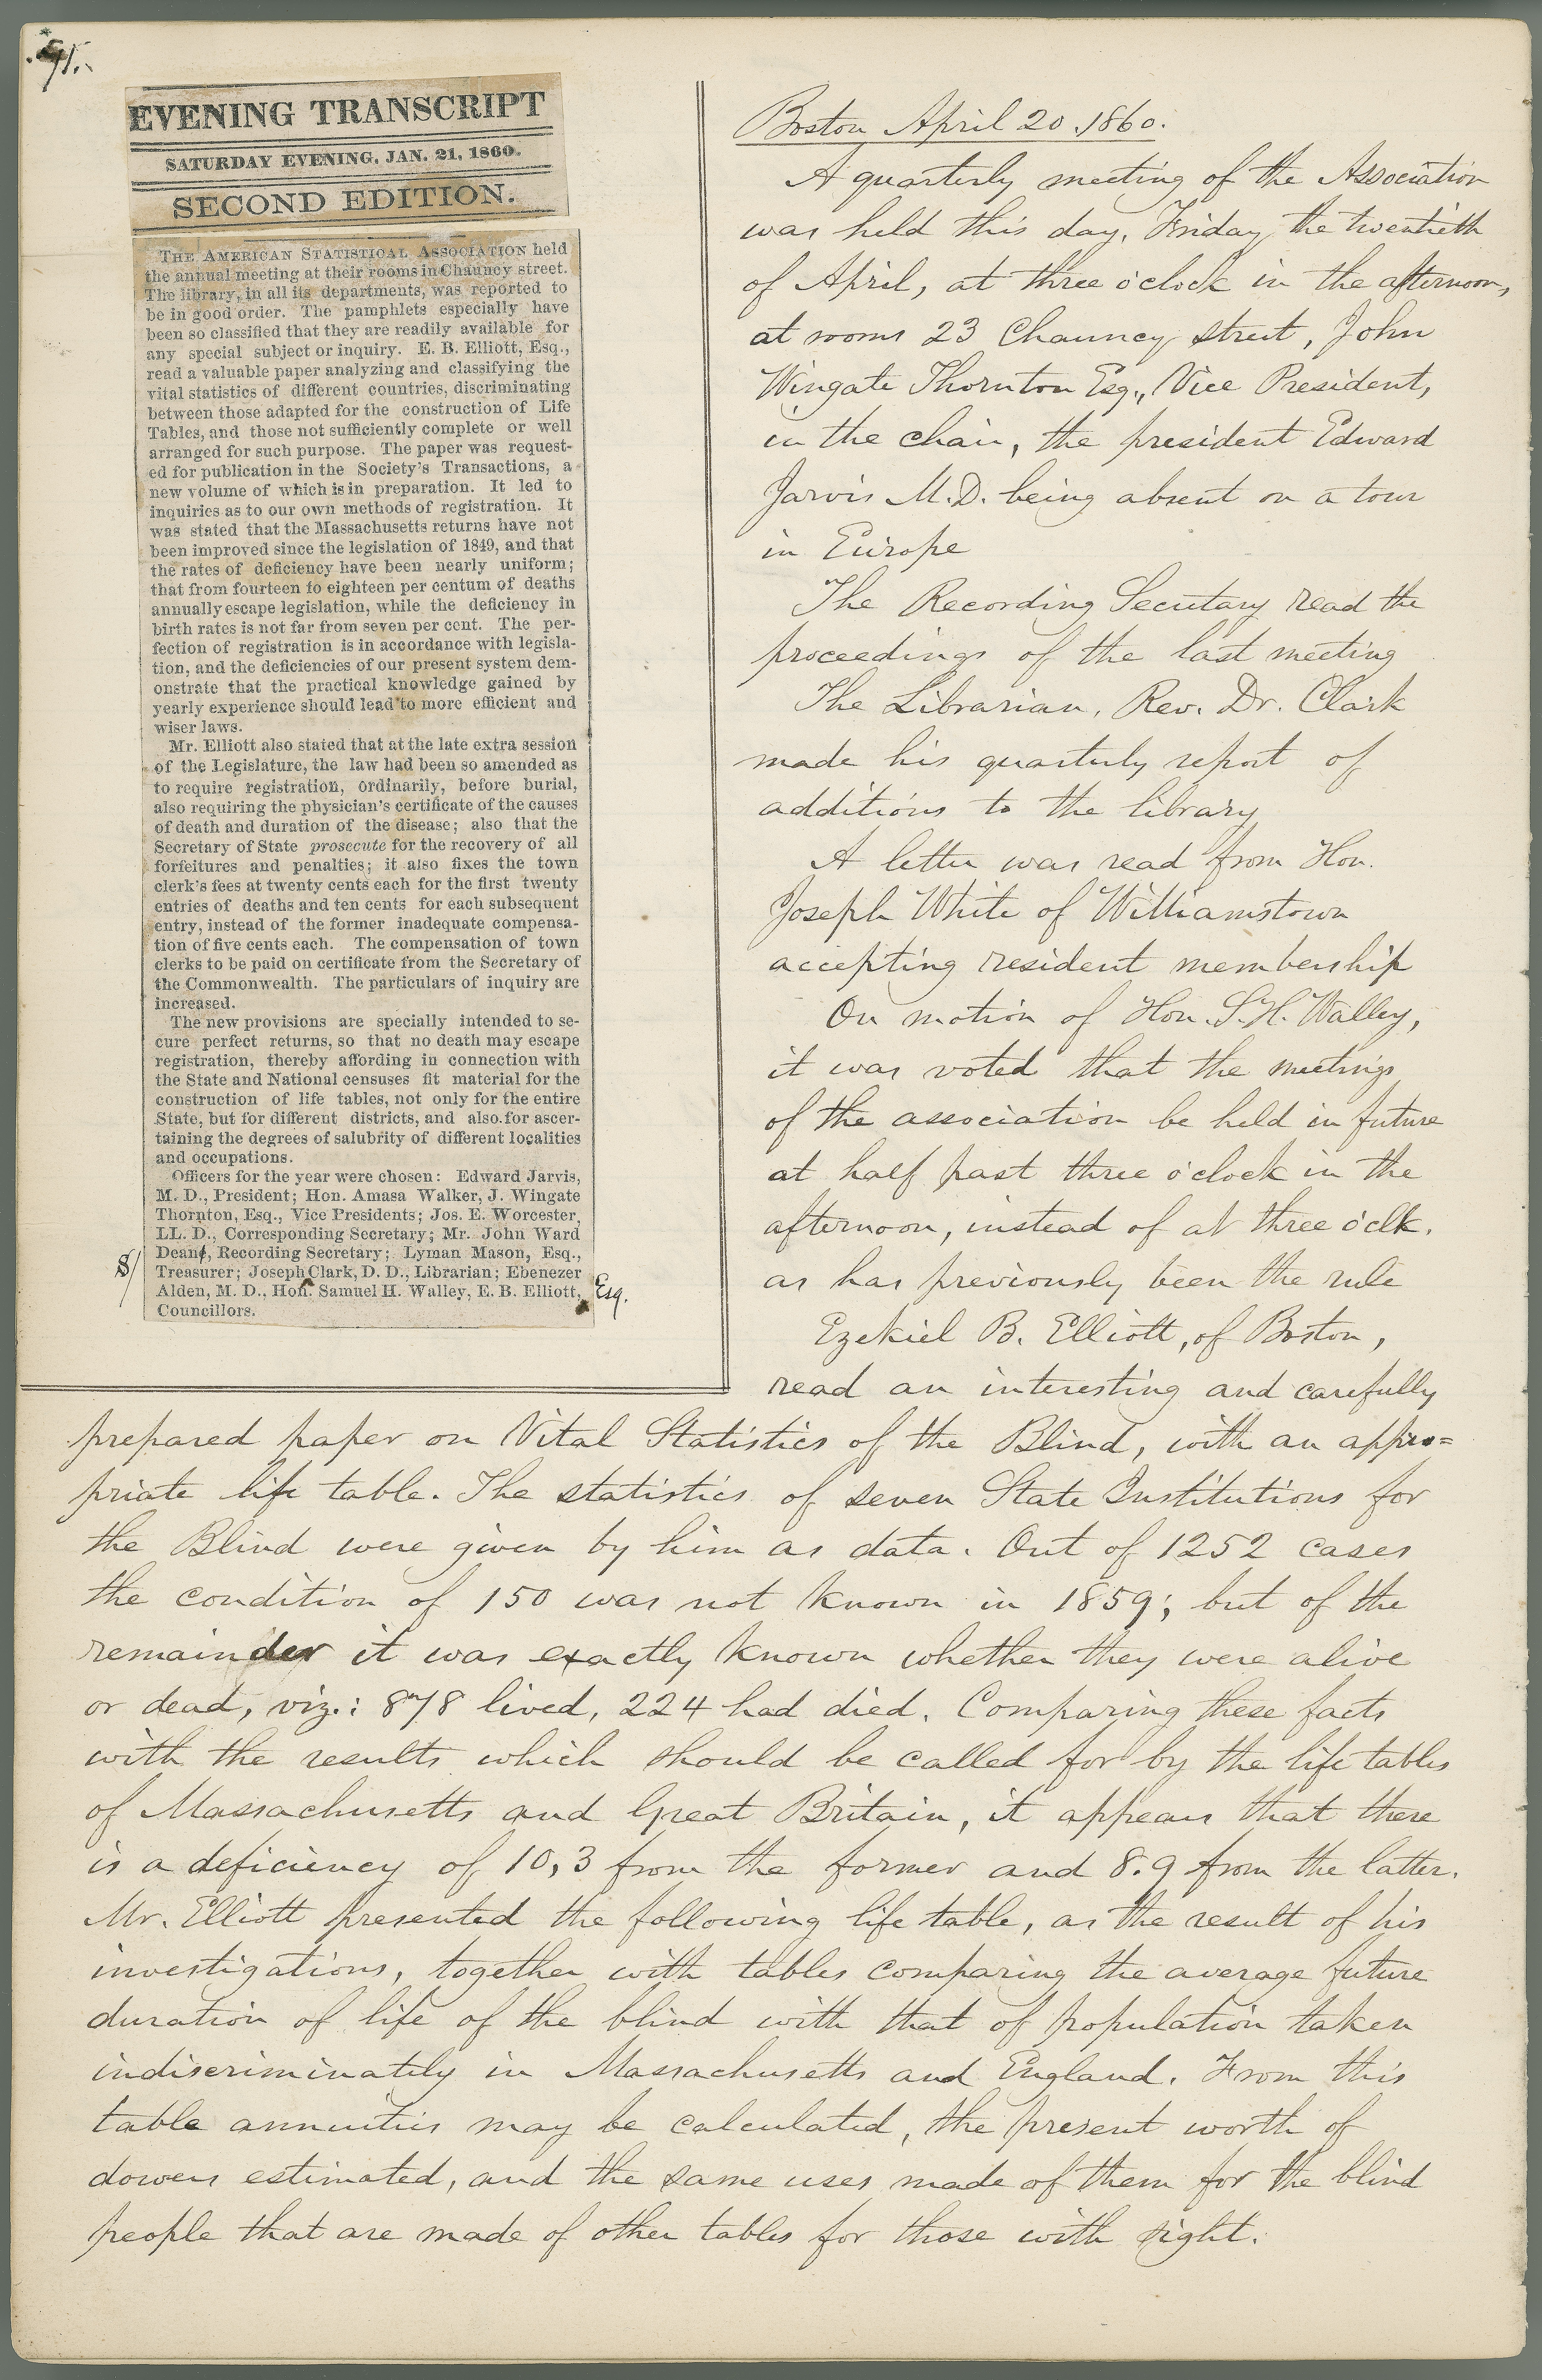 91.
EVENING TRANSCRIPT
SATURDAY EVENING, JAN. 21, 1860.
SECOND EDITION.
THE AMERICAN STATISTICAL ASSOCIATION held
the annual meeting at their rooms in Chauncy street.
The library, in all its departments, was reported to
be in good order. The pamphlets especially have
been so classified that they are readily available for
any special subject or inquiry. E. B. Elliott, Esq.,
read a valuable paper analyzing and classifying the
vital statistics of different countries, discriminating
between those adapted for the construction of Life
Tables, and those not sufficiently complete or well
arranged for such purpose. The paper was request-
ed for publication in the Society's Transactions, a
new volume of which is in preparation. It led to
inquiries as to our own methods of registration. It
was stated that the Massachusetts returns have not
been improved since the legislation of 1849, and that
the rates of deficiency have been nearly uniform;
that from fourteen to eighteen per centum of deaths
annually escape legislation, while the deficiency in
birth rates is not far from seven per cent. The per-
fection of registration is in accordance with legisla-
tion, and the deficiencies of our present system dem-
onstrate that the practical knowledge gained by
yearly experience should lead to more efficient and
wiser laws.
Mr. Elliott also stated that at the late extra session
of the Legislature, the law had been so amended as
to require registration, ordinarily, before burial,
also requiring the physician's certificate of the causes
of death and duration of the disease; also that the
Secretary of State prosecute for the recovery of all
forfeitures and penalties; it also fixes the town
clerk's fees at twenty cents each for the first twenty
entries of deaths and ten cents for each subsequent
entry, instead of the former inadequate compensa-
tion of five cents each. The compensation of town
clerks to be paid on certificate from the Secretary of
the Commonwealth. The particulars of inquiry are
increased.
The new provisions are specially intended to se-
cure perfect returns, so that no death may escape
registration, thereby affording in connection with
the State and National censuses fit material for the
construction of life tables, not only for the entire
State, but for different districts, and also for ascer-
taining the degrees of salubrity of different localities
and occupations.
Officers for the year were chosen: Edward Jarvis,
M. D., President; Hon. Amasa Walker, J. Wingate
Thornton, Esq., Vice Presidents; Jos. E. Worcester,
LL. D., Corresponding Secretary; Mr. John Ward
Dean, Recording Secretary; Lyman Mason, Esq.,
S/ Treasurer; Joseph Clark, D. D., Librarian; Ebenezer
Alden, M. D., Hon. Samuel H. Walley, E. B. Elliott, Esq.
Councillors.
Boston April 20. 1860.
A quarterly meeting of the Association
was held this day, Friday, the twentieth
of April, at three o'clock in the afternoon,
at rooms 23 Chauncy street, John
Wingate Thornton Esq., Vice President,
in the chair, the president Edward
Jarvis M.D. being absent on a tour
in Europe
The Recording Secretary read the
proceedings of the last meeting
The Librarian, Rev. Dr. Clark
made his quarterly report of
additions to the library
A letter was read from Hon.
Joseph White of Williamstown
accepting resident membership
On motion of Hon. S. H. Walley,
it was voted that the meetings
of the association be held in future
at half past three o'clock in the
afternoon, instead of at three o'clk.
as has previously been the rule
Ezekiel B. Elliott, of Boston,
read an interesting and carefully
prepared paper on Vital Statistics of the Blind, with an appro=
priate life table. The statistics of seven State Institutions for
the Blind were given by him as data. Out of 1252 cases
the condition of 150 was not known in 1859; but of the
remainder it was exactly known whether they were alive
or dead, viz.: 878 lived, 224 had died. Comparing these facts
with the results which should be called for by the life tables
of Massachusetts and Great Britain, it appears that there
is a deficiency of 10,3 from the former and 8.9 from the latter.
Mr. Elliott presented the following life table, as the result of his
investigations, together with tables comparing the average future
duration of life of the blind with that of population taken
indiscriminately in Massachusetts and England. From this
table annuities may be calculated, the present worth of
dowers estimated, and the same uses made of them for the blind
people that are made of other tables for those with sight.